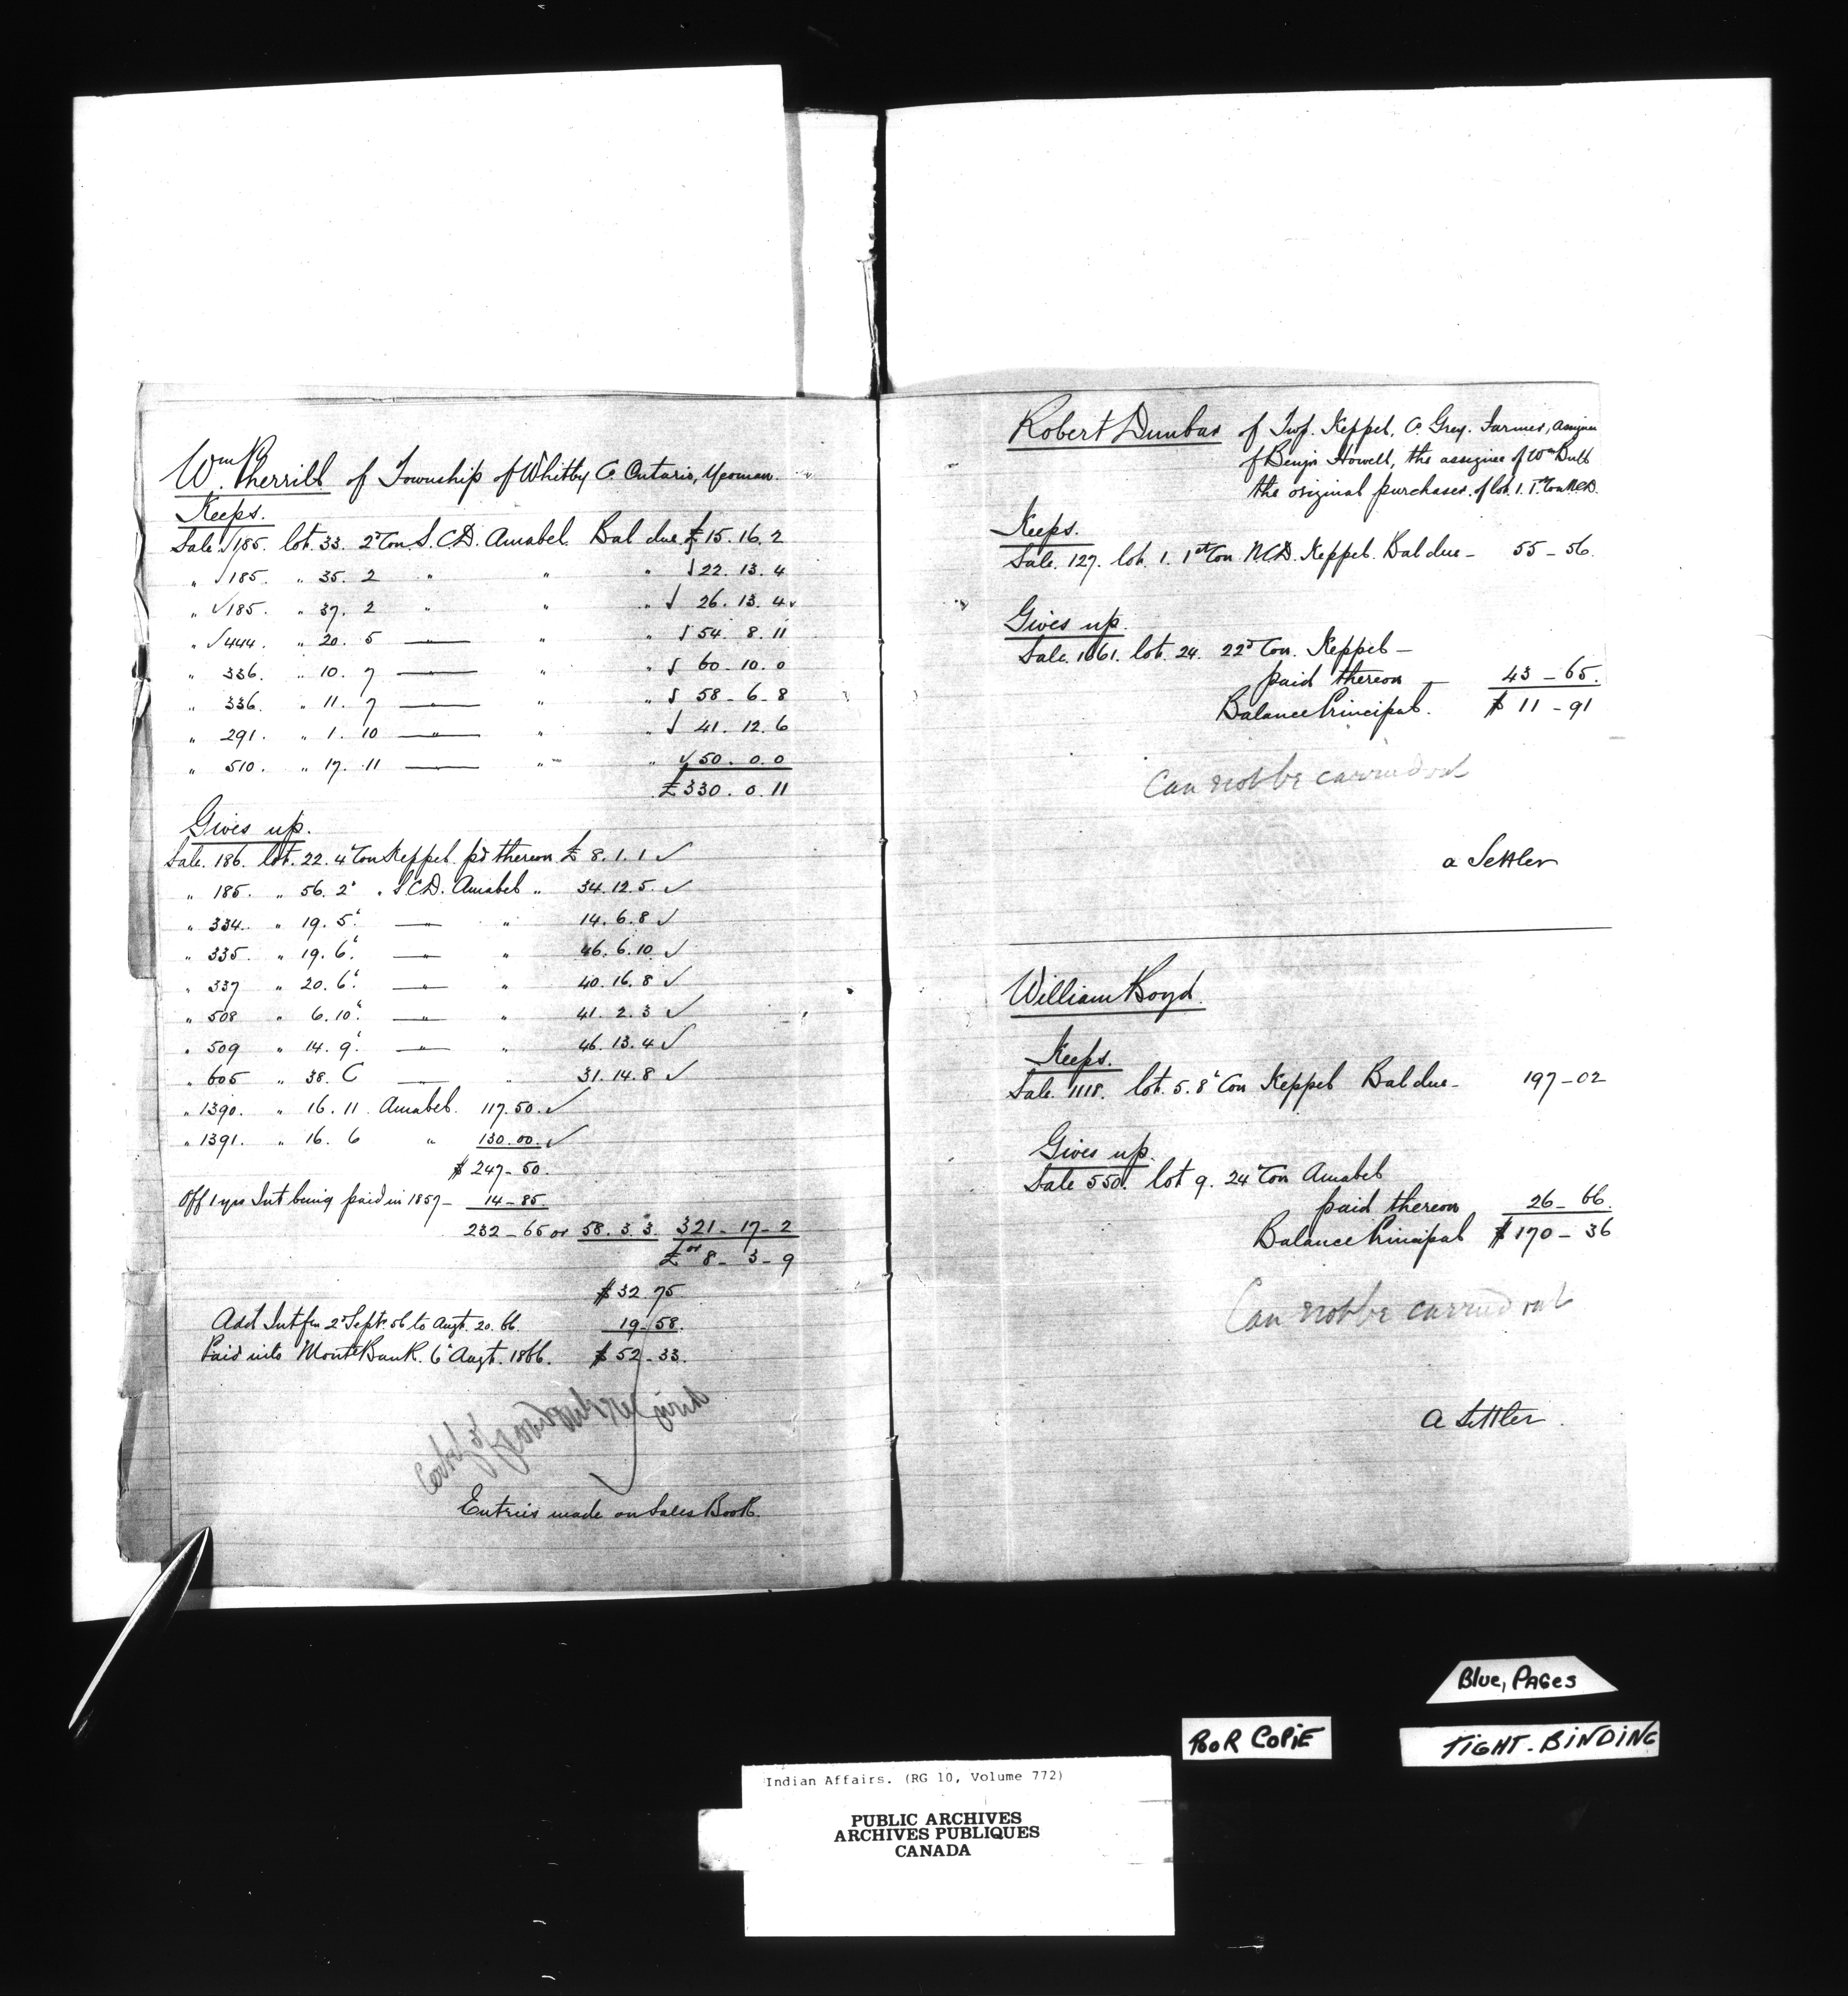 Wm. Pherrill of Township of Whitby C. Ontario, Yeoman.
Keeps.
Sale. √185. lot. 33. 2d Con S.C.D. Amabel. Bal due £ 15. 16. 2
" √185. " 35. 2 " " " √22. 13. 4
" √185. " 37. 2 " " " √ 26. 13. 4
" √444. " 20. 5 —"— " " √54. 8. 11
" 336. " 10. 7 —"— " " √ 60. 10. 0
" 336. " 11. 7 —"— " " √ 58 - 6 - 8
" 291. " 1. 10 —"— " " √ 41. 12. 6
" 510. " 17. 11 —"— " " √50. 0. 0
£330. 0. 11
Gives up.
Sale. 186. lot. 22. 4th Con Keppel. pd thereon £ 8. 1. 1 ✓
" 185. " 56. 2d . S.C.D. Amabel " 34. 12. 5. ✓
" 334. " 19. 5th —"— " 14. 6. 8 ✓
" 335. " 19. 6th —"— " 46. 6. 10 ✓
" 337 " 20. 6th —"— " 40. 16. 8 ✓
" 508 " 6. 10th —"— " 41. 2. 3 ✓
" 509 " 14. 9th —"— " 46. 13. 4 ✓
" 605 " 38. C —"— " 31. 14. 8 ✓
" 1390. " 16. 11 . Amabel. 117. 50. ✓
" 1391. " 16. 6 " 130. 00. ✓
$ 247 - 50.
Off 1 yrs Int being paid in 1857 - 14 - 85.
232 - 65 or 58. 3. 3. 321 - 17 - 2
£ or 8 - 3 - 9
$ 32. 75
Add Int fm 2d Sept. 56 to Augt. 20. 66. 19. 58.
Paid into Mont Bank. 6th Augt. 1866. $ 52 - 33.
Entries made on Sales Book.
Robert Dunbar of Twp. Keppel, C. Grey. Farmer, Assignee
of Benjn Howell, the assignee of Wm Dull
the original purchaser. of lot. 1. 1st Con N.C.D.
Keeps.
Sale. 127. lot. 1. 1st Con N.C.D. Keppel. Bal due - 55 - 56.
Gives up.
Sale. 1061. lot. 24. 22d Con. Keppel —
paid thereon - 43 - 65.
Balance Principal. $ 11 - 91
Can not be carried out
a Settler
William Boyd.
Keeps.
Sale. 1118. lot. 5. 8th Con Keppel Bal due - 197 - 02
Gives up.
Sale 550. lot 9. 24th Con Amabel
paid thereon 26 - 66.
Balance Principal $ 170 - 36
Can not be carried out
a Settler.
Blue, PAGes
PooR COPiE
TiGHT-BiNDiNG
Indian Affairs. (RG 10, Volume 772)
PUBLIC ARCHIVES
ARCHIVES PUBLIQUES
CANADA